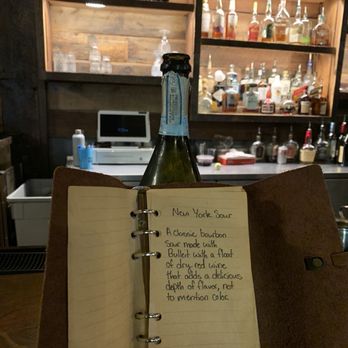 New York Sour
A classic bourbon
sour made with
Bulleit with a float
of dry red wine
that adds a delicious
depth of flavor, not
to mention color.